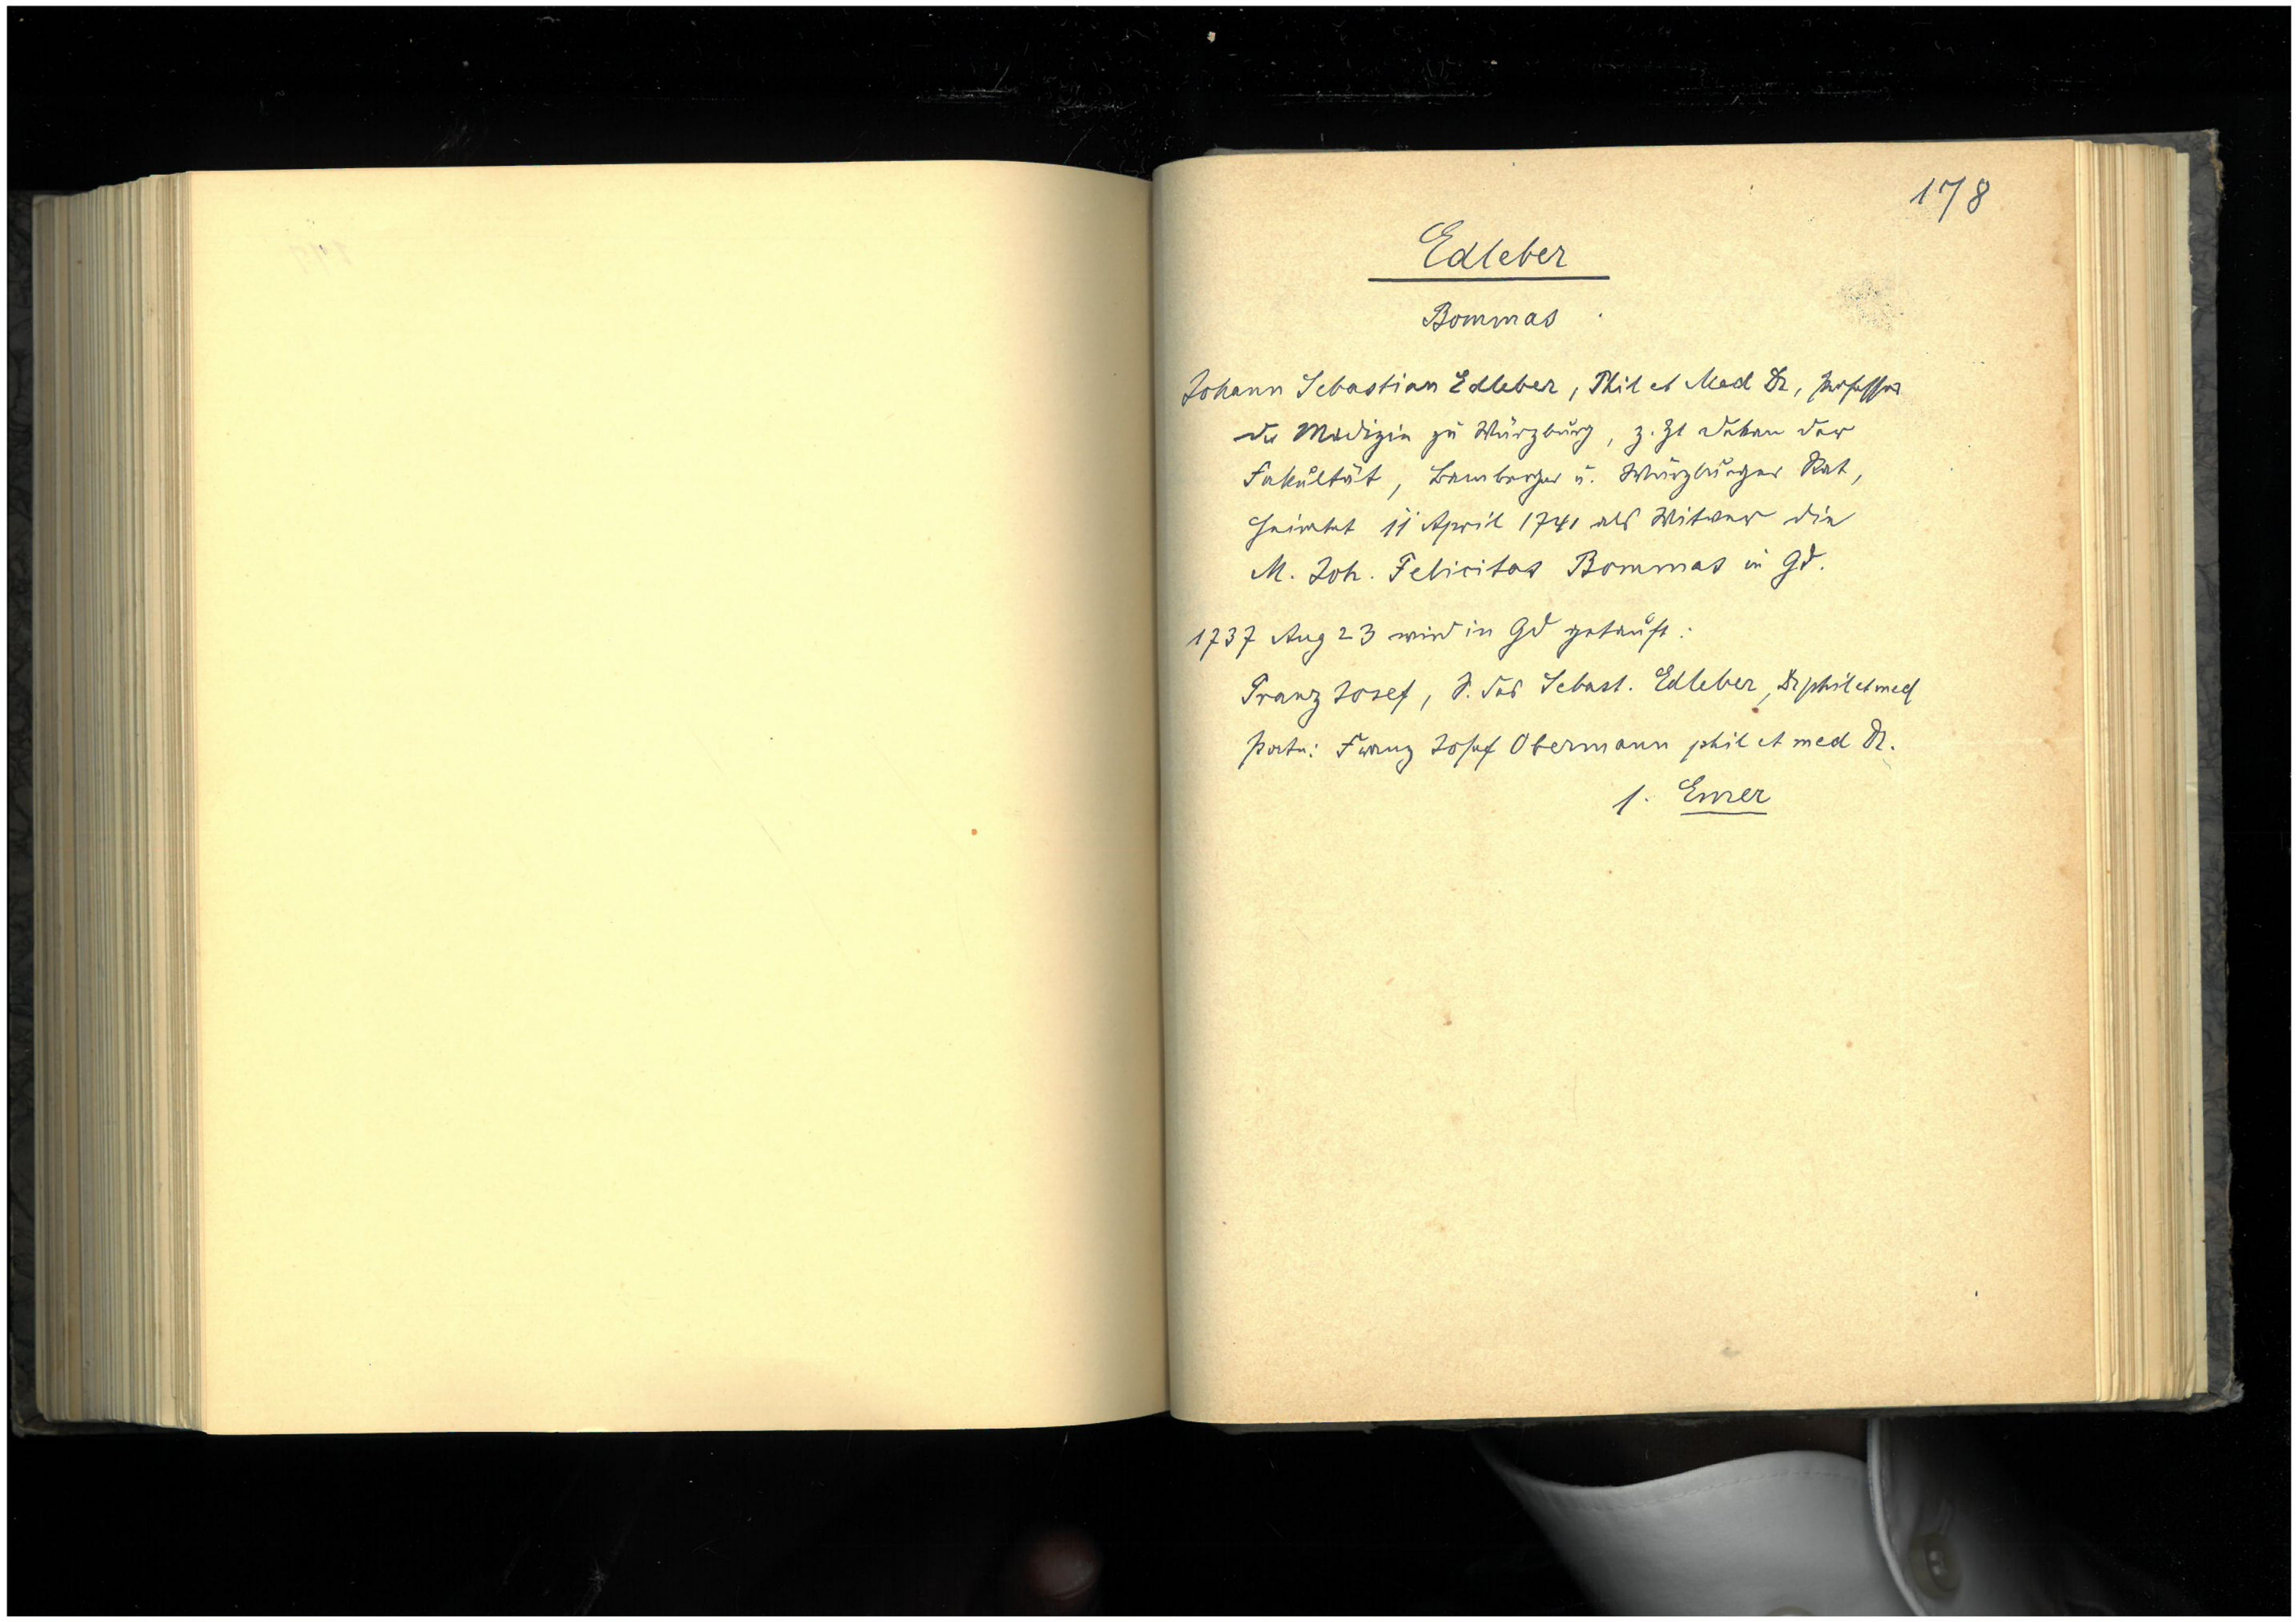 178
Edleber
Bommas
Johann Sebastian Edleber, Phil et Med Dr, Professor
der Medizin zu Würzburg, z. Zt Dekan der
Fakultät, Bamberger u. Würzburger Rat,
heiratet 11 April 1741 als Witwer die
M. Joh. Felicitas Bommas in Gd.
1737 Aug 23 wird in Gd getauft:
Franz Josef, S. des Sebast. Edleber, Dr phil et med
Pate: Franz Josef Obermann phil et med Dr.
s. Emer